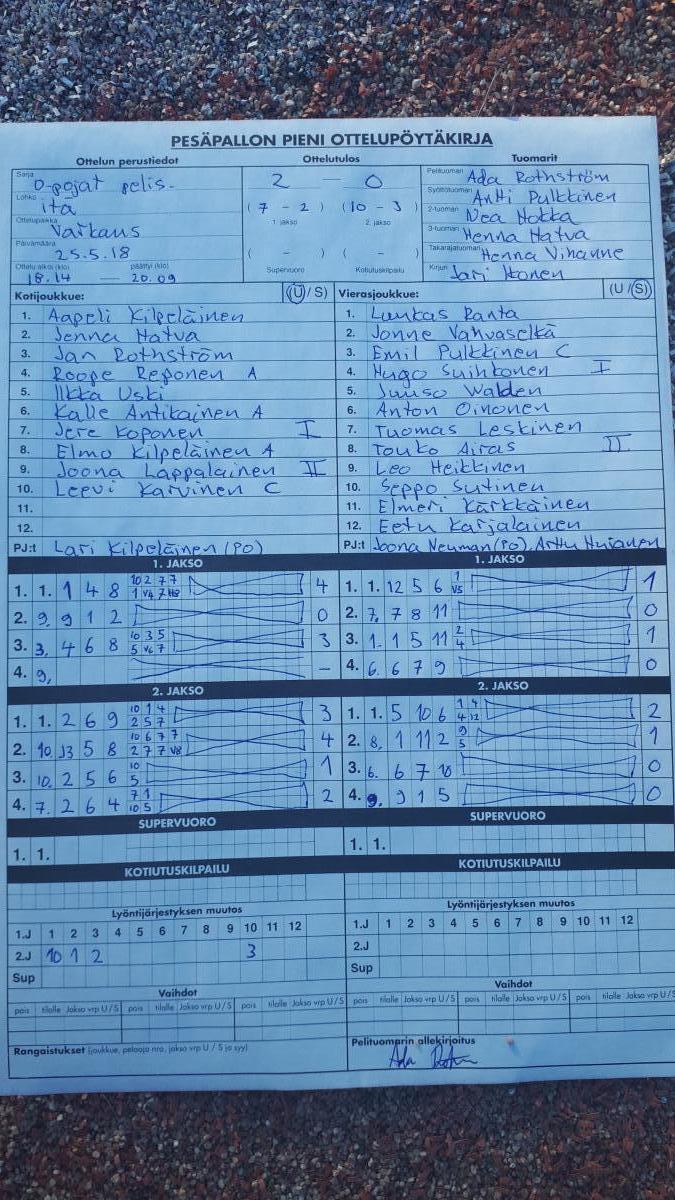 PESÄPALLON PIENI OTTELUPÖYTÄKIRJA
Ottelun perustiedot
Sarja
D-pojat pelis-
Lohko
itä
Ottelupaikka
Varkaus
Päivämäärä
25.5.18
Ottelu alkoi (klo) päättyi (klo)
18.14 — 20.09
Ottelutulos
2 — 0
(7 - 2) (10 - 3)
1. jakso 2. jakso
( - ) ( - )
Supervuoro Kotiutuskilpailu
Tuomarit
Pelituomari Ada Rothström
Syöttötuomari Antti Pulkkinen
2-tuomari Nea Hokka
3-tuomari Henna Hatva
Takarajatuomari Henna Vihanne
Kirjuri Jari Ikonen
Kotijoukkue: (U / S)
1. Aapeli Kilpeläinen
2. Jenna Hatva
3. Jan Rothström
4. Roope Reponen A
5. Ilkka Uski
6. Kalle Antikainen A
7. Jere Koponen I
8. Elmo Kilpeläinen A
9. Joona Lappalainen II
10. Leevi Karvinen C
11.
12.
PJ:t Lari Kilpeläinen (PO)
Vierasjoukkue: (U / S)
1. Luukas Ranta
2. Jonne Vahvaselkä
3. Emil Pulkkinen C
4. Hugo Suihkonen I
5. Juuso Walden
6. Anton Oinonen
7. Tuomas Leskinen
8. Touko Airas II
9. Leo Heikkinen
10. Seppo Sutinen
11. Elmeri Kärkkäinen
12. Eetu Karjalainen
PJ:t Joona Neuman (PO) Arttu
1. JAKSO
1. 1. 1 4 8 10 2 7 7 4
1 V4 7
2. 9. 9 1 2 0
3. 3. 4 6 8 10 3 5 3
5 V6 7
4. 9. –
1. JAKSO
1. 1. 12 5 6 1 1
V5
2. 7. 7 8 11 0
3. 1. 1 5 11 2 1
4
4. 6. 6 7 9 0
2. JAKSO
1. 1. 2 6 9 10 1 4 3
2 5 7
2. 10. 3 5 8 10 6 7 7 4
2 7 7 V8
3. 10. 2 5 6 10 1
5
4. 7. 2 6 4 7 1 2
10 5
2. JAKSO
1. 1. 5 10 6 1 4 2
4 12
2. 8. 1 11 2 9 1
5
3. 6. 6 7 10 0
4. 9. 9 1 5 0
SUPERVUORO
1. 1.
SUPERVUORO
1. 1.
KOTIUTUSKILPAILU
KOTIUTUSKILPAILU
Lyöntijärjestyksen muutos
1.J 1 2 3 4 5 6 7 8 9 10 11 12
2.J 10 1 2 3
Sup
Lyöntijärjestyksen muutos
1.J 1 2 3 4 5 6 7 8 9 10 11 12
2.J
Sup
Vaihdot
pois tilalle Jakso vrp U / S pois tilalle Jakso vrp U / S pois tilalle Jakso vrp U / S
Vaihdot
pois tilalle Jakso vrp U / S pois tilalle Jakso vrp U / S pois tilalle Jakso vrp U / S
Rangaistukset (joukkue, pelaaja nro, jakso vrp U / S ja syy)
Pelituomarin allekirjoitus
Ada